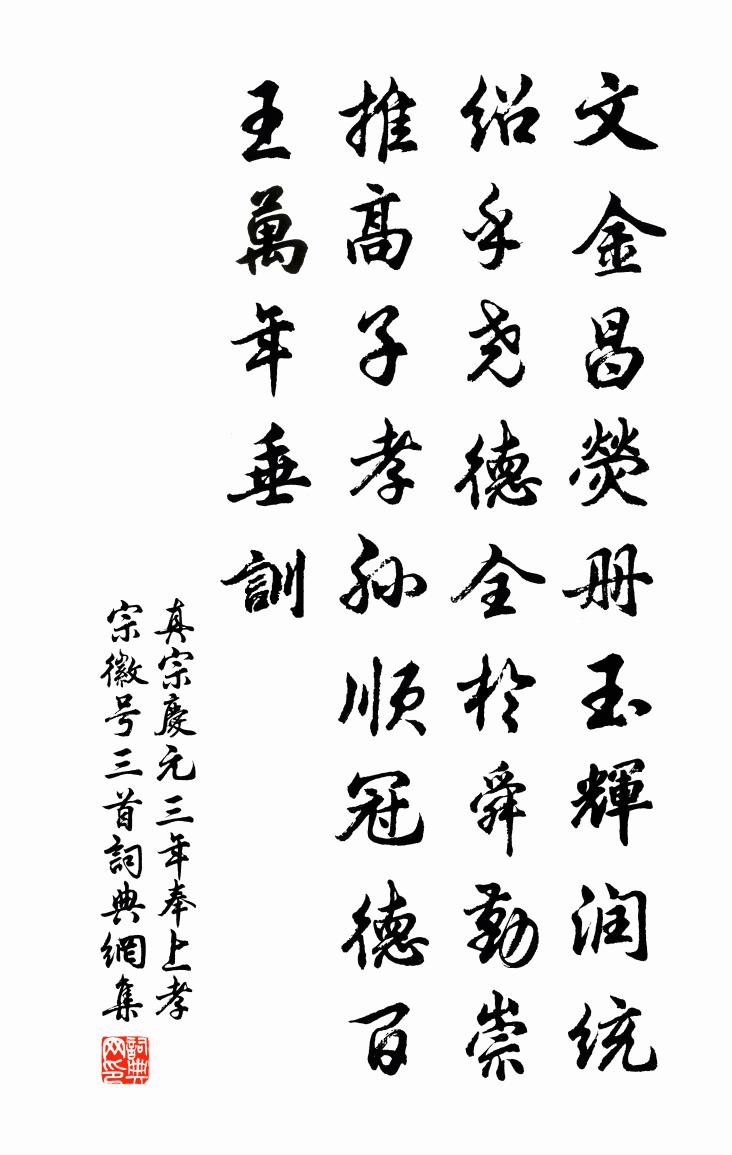 文金昌熒册玉輝润統
绍乎尧德全於舜勤崇
推高子孝孙順冠德百
王萬年垂訓
真宗慶元三年奉上孝
宗徽号三首詞典網集
詞典网印